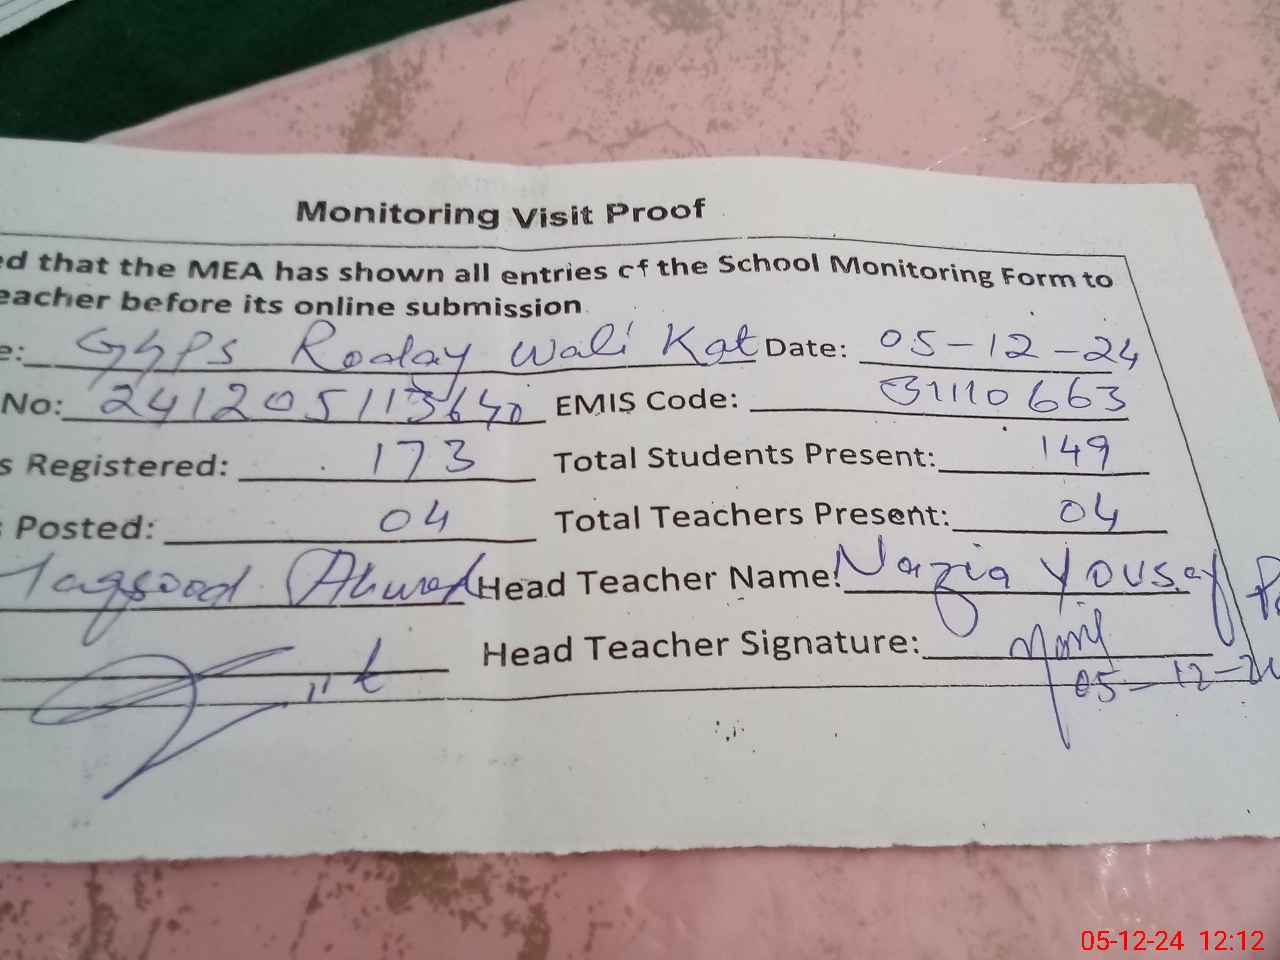 Monitoring Visit Proof
ed that the MEA has shown all entries of the School Monitoring Form to
eacher before its online submission
e: GGPS Roday Wali Kot Date: 05-12-24
No: EMIS Code: 31110663
s Registered: 173 Total Students Present: 149
s Posted: 04 Total Teachers Present: 04
Maqsood Ahmad Head Teacher Name: Nazia Yousaf
Head Teacher Signature:
05-12-24
05-12-24 12:12